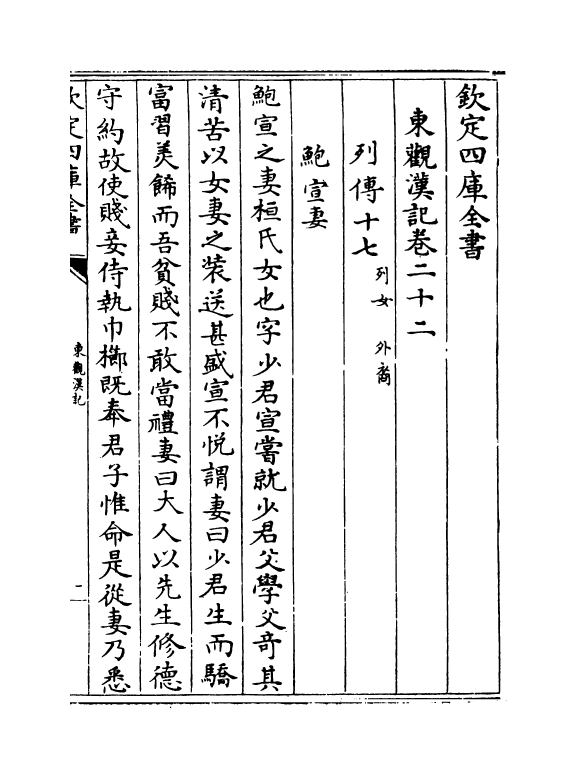 欽定四庫全書
東觀漢記卷二十二
列傳十七 列女 外裔
鮑宣妻
鮑宣之妻桓氏女也字少君宣嘗就少君父學父奇其
清苦以女妻之裝送甚盛宣不悅謂妻曰少君生而驕
富習美餙而吾貧賤不敢當禮妻曰大人以先生修德
守約故使賤妾侍執巾櫛既奉君子惟命是從妻乃悉
欽定四庫全書
東觀漢記